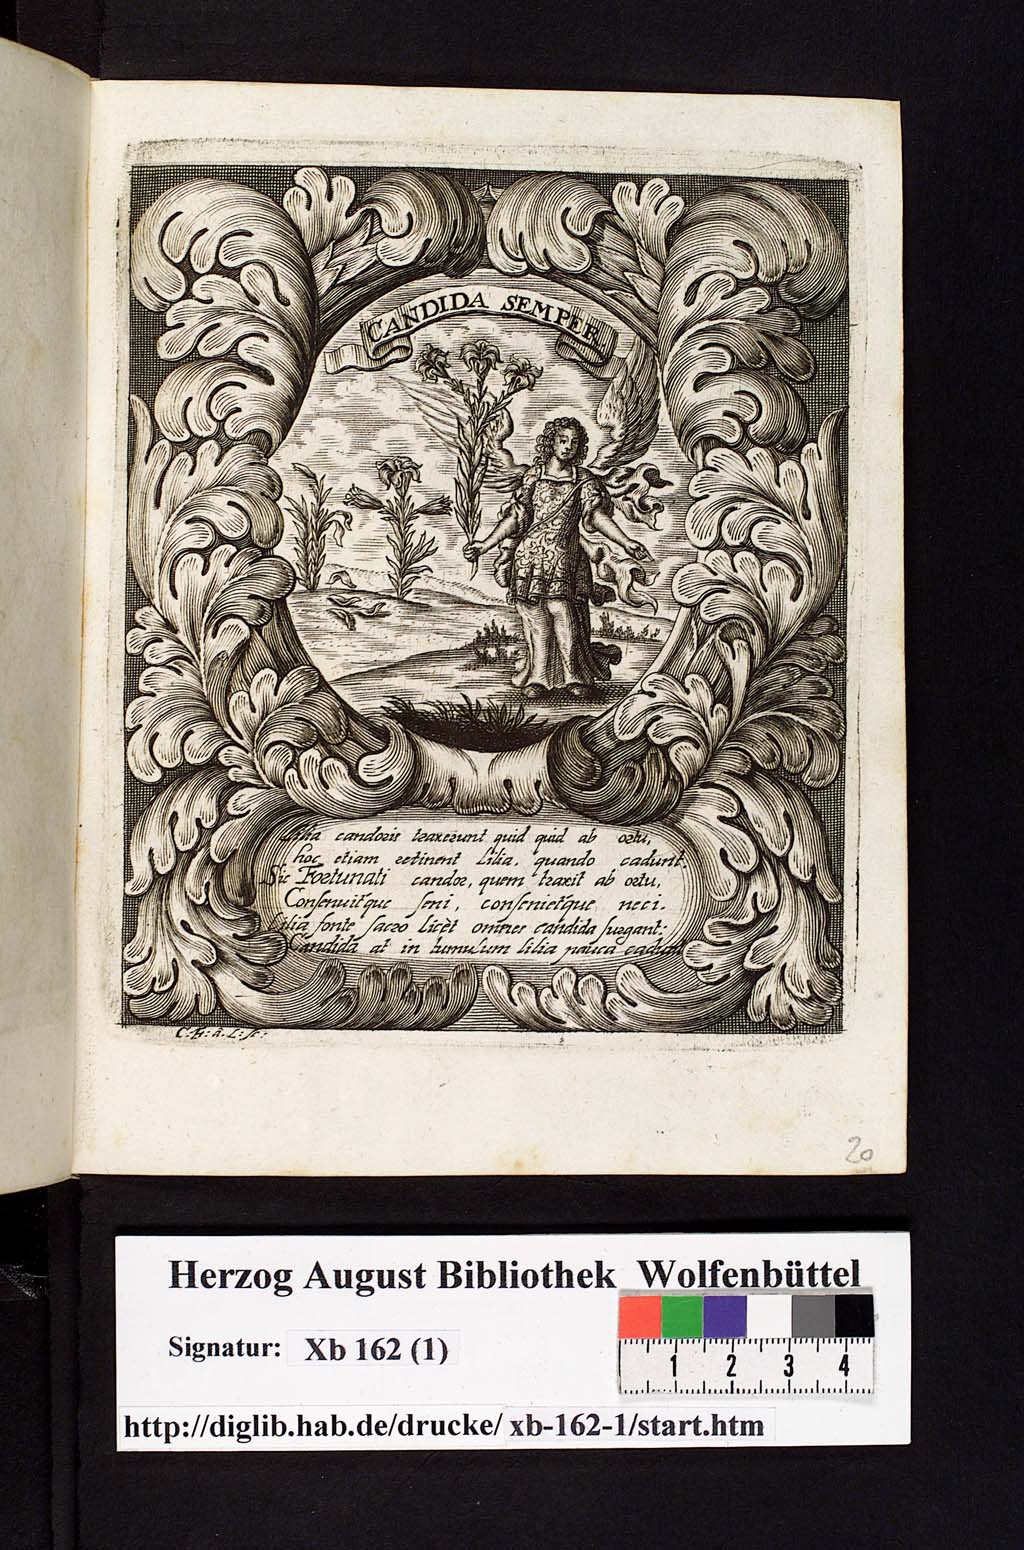 CANDIDA SEMPER
Lilia candoris traxerunt quid quid ab ortu,
hoc etiam retinent Lilia, quando cadunt.
Sic Fortunati candor, quem traxit ab ortu,
Consenuitque seni, consenietque neci.
Lilia fonte sacro licèt omnes candida surgant:
Candida at in tumulum lilia pauca cadunt
C. H: à. L: sc:
20
Herzog August Bibliothek Wolfenbüttel
Signatur: Xb 162 (1)
1 2 3 4
http://diglib.hab.de/drucke/ xb-162-1/start.htm